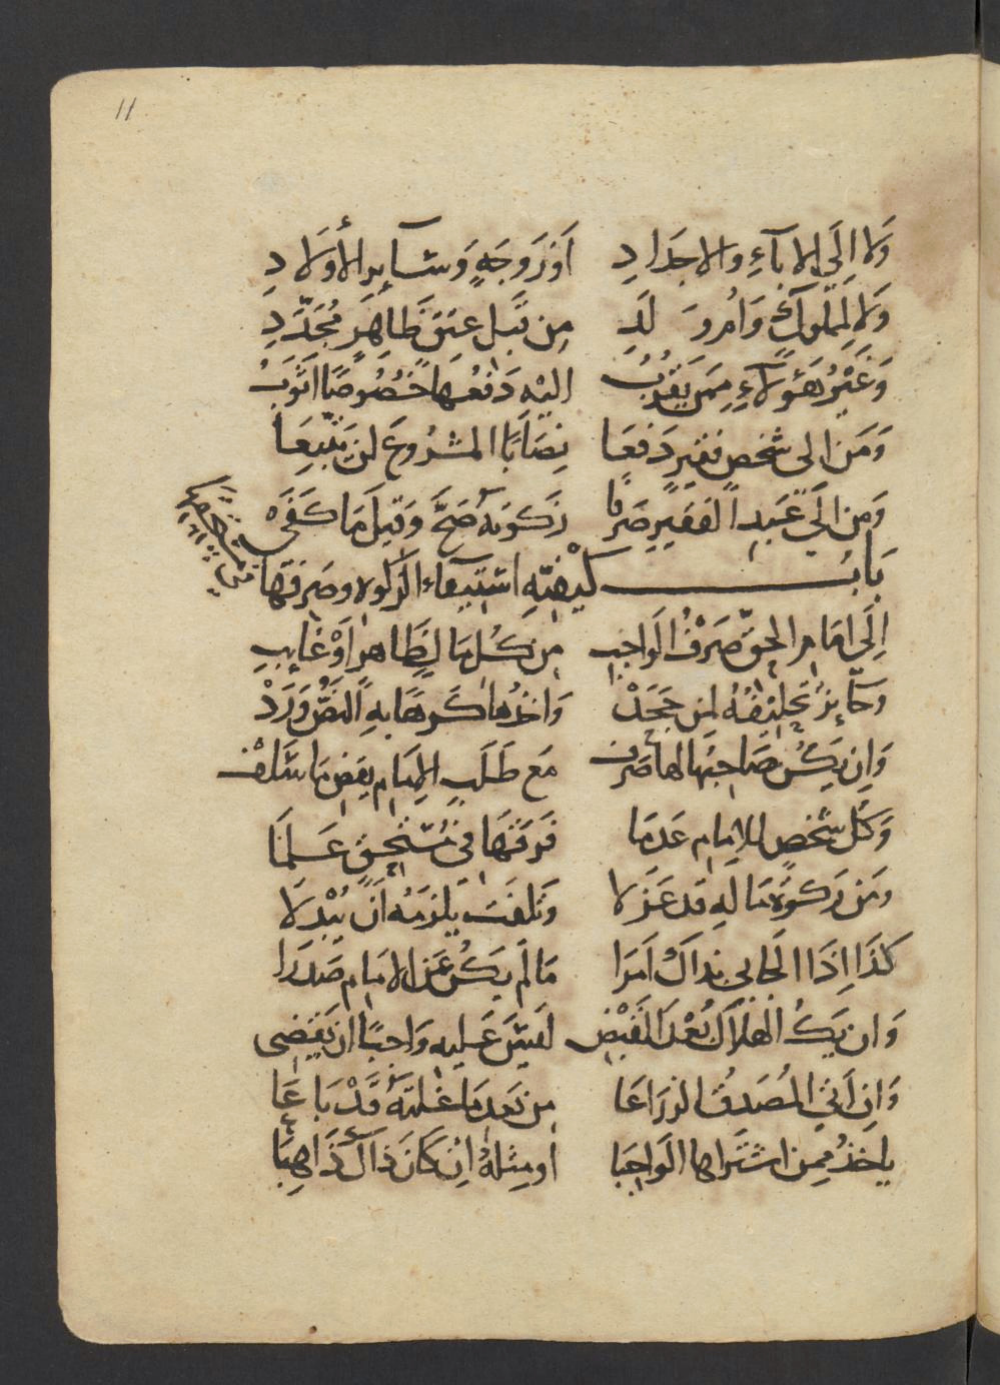 11
وَلَا اِلَى الابآءِ والاجدادِ اَوْ زَوجَةٍ وَسَآيِرِ الأَوْلَادِ
وَلَا لمِملُوكٍ وَاُم وَلَدِ مِن قَبلِ عِتقٍ ظَاهرٍ مُجَدَّدِ
وَغَيْرُ هَؤلآءِ مِمَن يَقرُبُ اليْه دَفعُها خُصُوصًا اَثْوَبُ
وَمَن الى شخصٍ فقيرٍ دَفعَا نِصَابًا المشرُوعَ لن يَتَّبِعَا
وَمن اِلَى عَبدِ الفقيرِ صَرفَا زَكوتهُ صَحَّ وَقيلَ مَا كَفَى
بَابُ كيفيَّةِ اسْتيفآء الزكوة وصَرفهَا
اِلَى اِمَامِ الحقّ صَرْفُ الوَاجبِ من كُل مَالٍ ظَاهرٍ اَوْ غايبِ
وَجآيزٌ تحليفُهُ لمن جَحَدْ وَاخذُها كَرهًا بهِ النصُّ وَرَدْ
وَاِن يَكُن صَاحبُها لها صَرف مَع طَلَبِ الامَامِ يقضِ مَا سَلَفْ
وَكل شخصٍ للامِامِ عَدمَا فرقهَا في مُستحِقٍ عَلمَا
ومَن زكوةَ مَالهِ قد عَزلا وَتلفت يَلزمُه اَنْ يُبْدلَا
كذَا اِذَا الجَابي بذاكَ اَمَرَا مَا لَم يَكُن عَن الامَامِ صَدَرَا
وَان يَكُ الهلَاكُ بُعْدَ القَبْضِ لَيسَ عَليه وَاجبًا ان يَقضِى
وَاِن اَتى المُصَدقُ الزرَاعَا من بَعدِ مَا غلتهُ قَدْ بَاعَا
ياخذُ ممِن اشتَراها الوَاجبَا او مِثلهُ اِنْ كَانَ ذَاكَ ذَاهِبَا